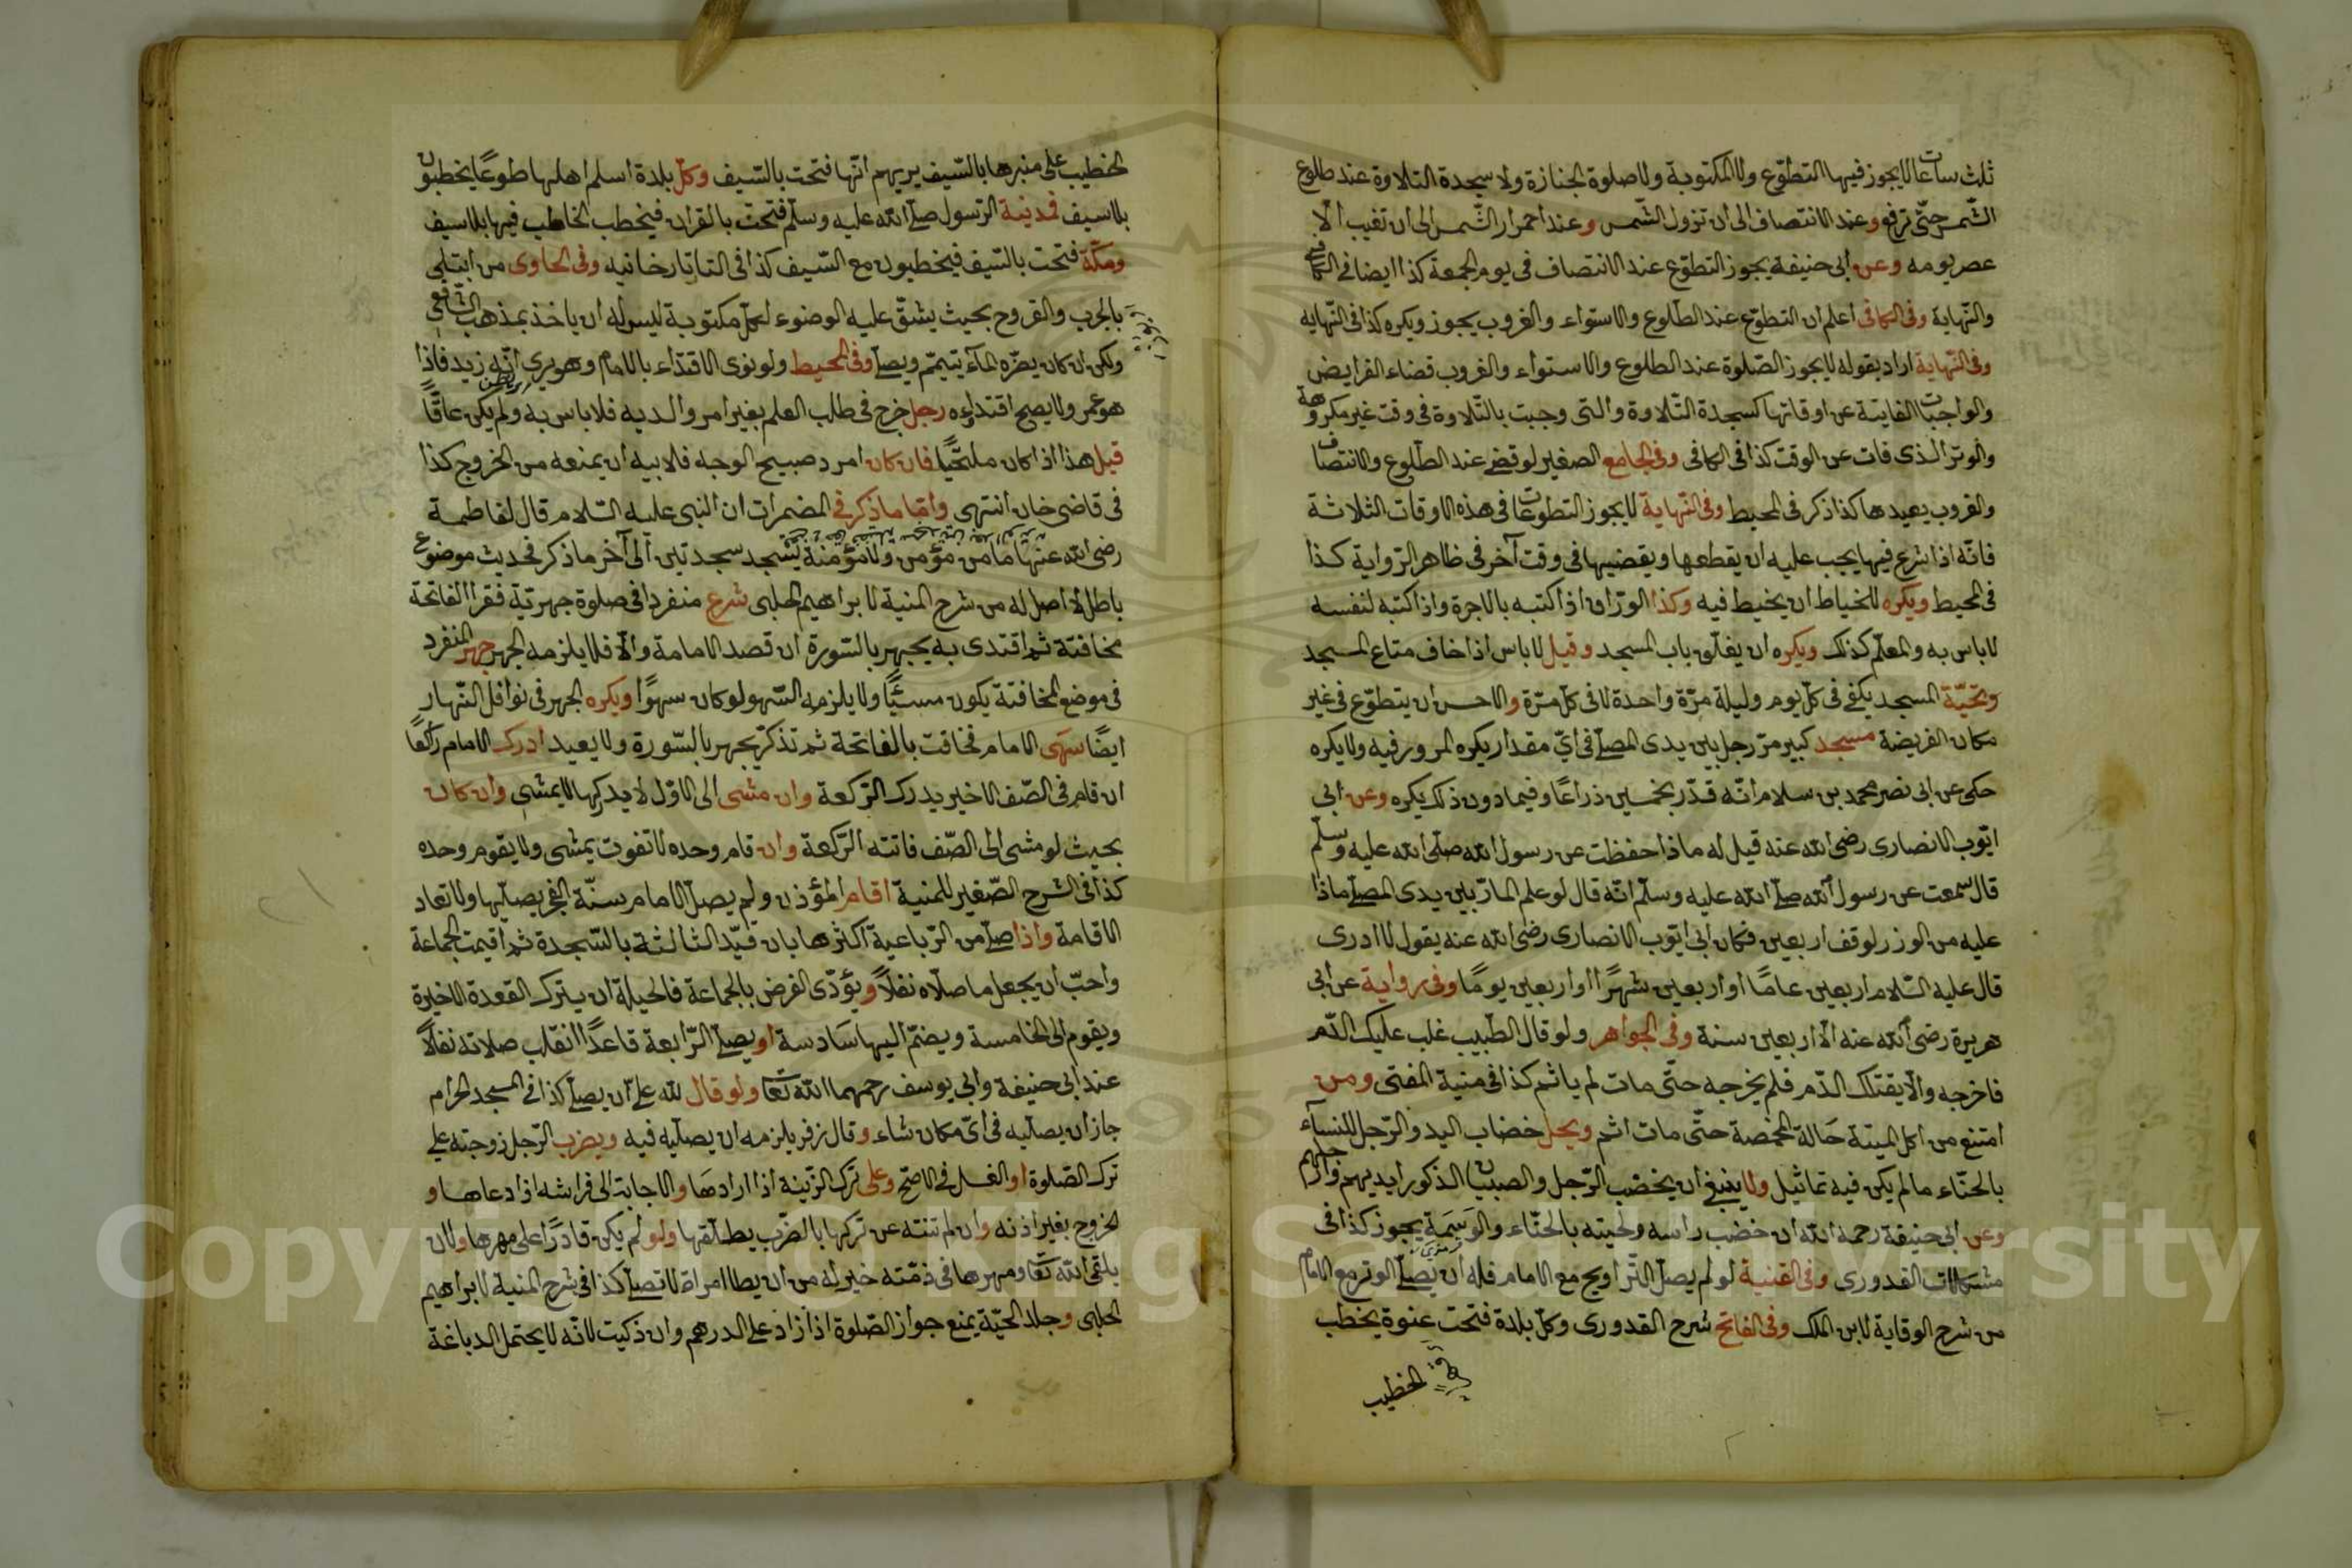 ثلث ساعات لا يجوز فيها التطوّع ولا المكتوبة ولا صلوة الجنازة ولا سجدة التلاوة عند طلوع
الشّمس حتّى ترفع وعند الانتصاف الى ان تزول الشّمس وعند احمرار الشّمس الى ان تغيب الّا
عصر يومه وعن ابى حنيفة يجوز التطوّع عند الانتصاف فى يوم الجمعة كذا ايضا فى الكافى
والنّهاية وفى الكافى اعلم ان التطوّع عند الطّلوع والاستواء والغروب يجوز ويكره كذا فى النّهاية
وفى النّهاية اراد بقوله لا يجوز الصّلوة عند الطلوع والاستواء والغروب قضاء الفرايض
والواجبات الفايتة عن اوقاتها كسجدة التّلاوة والتى وجبت بالتّلاوة فى وقت غير مكروهة
والوتر الذى فات عن الوقت كذا فى الكافى وفى الجامع الصغير لو قضى عند الطّلوع والانتصاف
والغروب يعيدها كذا ذكر فى المحيط وفى النّهاية لا يجوز التطوعات فى هذه الاوقات الثلاثة
فانّه اذا شرع فيها يجب عليه ان يقطعها ويقضيها فى وقت آخر فى ظاهر الرّواية كذا
فى المحيط ويكره للخياط ان يخيط فيه وكذا الورّاق اذا كتبه بالاجرة واذا كتبه لنفسه
لا باس به والمعلّم كذلك ويكره ان يغلق باب المسجد وقيل لا باس اذا خاف متاع المسجد
وتحيّة المسجد يكفى فى كلّ يوم وليلة مرّة واحدة لا فى كلّ مرّة والاحسن ان يتطوّع فى غير
مكان الفريضة مسجد كبير مرّ رجل بين يدى المصلّى فى اىّ مقدار يكره المرور فيه ولا يكره
حكى عن ابى نصر محمد بن سلام انّه قدّر بخمسين ذراعًا وفيما دون ذلك يكره وعن ابى
ايّوب الانصارى رضى الله عنه قيل له ماذا حفظت عن رسول الله صلّى الله عليه وسلّم
قال سمعت عن رسول الله صلّى الله عليه وسلّم انّه قال لو علم المارّ بين يدى المصلّى ماذا
عليه من الوزر لوقف اربعين فكان ابى ايّوب الانصارى رضى الله عنه يقول لا ادرى
قال عليه السّلام اربعين عامًا او اربعين شهرًا او اربعين يومًا وفى رواية عن ابى
هريرة رضى الله عنه الّا اربعين سنة وفى الجواهر ولو قال الطّبيب غلب عليك الدّم
فاخرجه والّا يقتلك الدّم فلم يخرجه حتّى مات لم ياثم كذا فى منية المفتى ومن
امتنع من اكل الميتة حَالة المخمصة حتّى مات اثم ويحل خضاب اليد والرّجل للنّسآء
بالحنّاء ما لم يكن فيه تماثيل ولا ينبغى ان يخضب الرّجل والصبيان الذكور ايديهم وارجلهم
وعن ابى حنيفة رحمه الله ان خضب راسه ولحيته بالحنّاء والوَسِمَة يجوز كذا فى
مشكلات القدورى وفى القنية لو لم يصلّ التّراويح مع الامام فله ان يصلّى الوتر مع الامام
من شرح الوقاية لابن الملك وفى الفاتح شرح القدورى وكلّ بلدة فتحت عنوة يخطب
الخطيب
الخطيب على منبرها بالسّيف يريهم انّها فتحت بالسّيف وكلّ بلدة اسلم اهلها طوعًا يخطبون
بلا سيف فمدينة الرّسول صلّى الله عليه وسلّم فتحت بالقران فيخطب الخاطب فيها بلا سيف
ومكّة فتحت بالسّيف فيخطبون مع السّيف كذا فى التاتارخانيه وفى الحاوى من ابتلى
بالجرب والقروح بحيث يشقّ عليه الوضوء لكلّ مكتوبة ليس له ان ياخذ بمذهب الشّافعى
ولكن ان كان يضرّه المآء يتيمّم ويصلّى وفى المحيط ولو نوى الاقتدٓاء بالامام وهو يرى انّه زيد فاذا
هو عمر ولا يصح اقتداؤه رجل خرج فى طلب العلم بغير امر والديه فلا باس به ولم يكن عاقًّا
قيل هذا اذا كان ملتحيًا فان كان امرد صبيح الوجه فلابيه ان يمنعه من الخروج كذا
فى قاضى خان انتهى وامّا ما ذكر فى المضمرات ان النبى عليه السّلام قال لفاطمة
رضى الله عنها ما من مؤمن ولا مؤمنة يسجد سجدتين الى آخر ما ذكر فحديث موضوع
باطل لا اصل له من شرح المنية لابراهيم الحلبى شرع منفردا فى صلوة جهريّة فقرا الفاتحة
مخافتة ثم اقتدى به يجهر بالسّورة ان قصد الامامة والّا فلا يلزمه الجهر جهر المنفرد
فى موضع المخافتة يكون مسيئًا ولا يلزمه السّهو لو كان سهوًا ويكره الجهر فى نوافل النّهار
ايضًا سهى الامام فخافت بالفاتحة ثم تذكّر يجهر بالسّورة ولا يعيد ادرك الامام راكعًا
ان قام فى الصّف الاخير يدرك الرّكعة وان مشى الى الاوّل لا يدركها لا يمشى وان كان
بحيث لو مشى الى الصّف فاتته الرّكعة وان قام وحده لا تفوت يمشى ولا يقوم وحده
كذا فى الشرح الصّغير للمنية اقام المؤذن ولم يصلّ الامام سنّة الفجر يصلّيها ولا تعاد
الاقامة واذا صلّى من الرّباعية اكثرها بان قيّد الثالثة بالسّجدة ثم اقيمت الجماعة
واحبّ ان يجعل ما صلّاه نفلًا ويؤدّى الفرض بالجماعة فالحيلة ان يترك القعدة الاخيرة
ويقوم الى الخامسة ويضمّ اليها سَادسة او يصلّى الرّابعة قاعدًا انقلب صلاته نفلًا
عند ابى حنيفة وابى يوسف رحمهما الله تعا ولو قال لله علىّ ان يصلّى كذا فى المسجد الحرام
جاز ان يصلّيه فى اىّ مكان شاء وقال زفر يلزمه ان يصلّيه فيه ويضرب الرّجل زوجته على
ترك الصّلوة او الغسل فى الاصحّ وعلى ترك الزّينة اذا ارادهَا والاجابة الى فراشه اذا دعاها و
لخروج بغير اذنه وان لم تنته عن تركها بالضّرب يطلّقها ولو لم يكن قادرًا على مهرها ولان
يلقى الله تعا ومهرها فى ذمّته خير له من ان يطا امراة لا تصلّى كذا فى شرح المنية لابراهيم
الحلبى وجلد الحيّة يمنع جواز الصّلوة اذا زاد على الدرهم وان ذكيت لانّه لا يحتمل الدباغة
Copyright © King Saud University